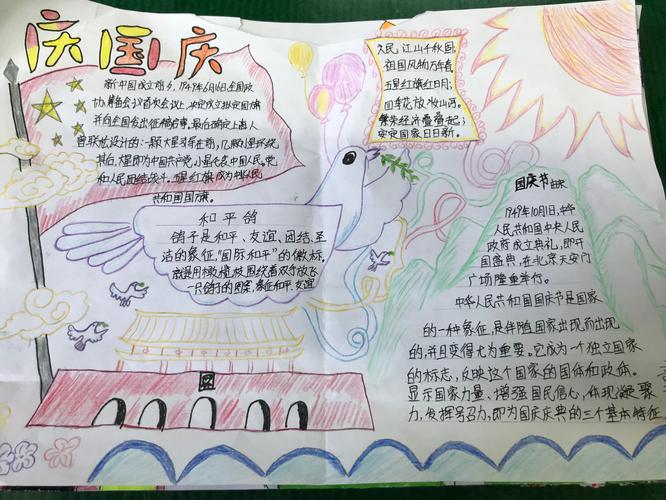 庆国庆
新中国成立前夕，1949年6月16日全国政
协筹备会议首次会议上，决定成立拟定国旗
并向全国发出征稿启事。最后确定上海人
曾联松设计的:一颗大星导在前，几颗小星环绕
其后，大星即为中国共产党，小星代表中国人民。党
和人民团结战斗。五星红旗成为中华人民
共和国国旗。
人民江山千秋固，
祖国风物万年春
五星红旗红日月；
四季花放如山河。
繁荣经济蒸蒸起；
安定国家日日新。
和平鸽
鸽子是和平、友谊、团结、圣
洁的象征，"国际和平"的徽标。
就是用橄榄枝围绕着双手放飞
一只鸽子的图案，象征和平、友谊
国庆节由来
1949年10月1日，中华
人民共和国中央人民
政府成立典礼，即开
国盛典，在北京天安门
广场隆重举行。
中华人民共和国国庆节是国家
的一种象征，是伴随国家出现而出现
的，并且变得尤为重要。它成为一个独立国家
的标志，反映这个国家的国体和政体。
显示国家力量、增强国民信心，体现凝聚
力，发挥号召力，即为国庆庆典的三个基本特征